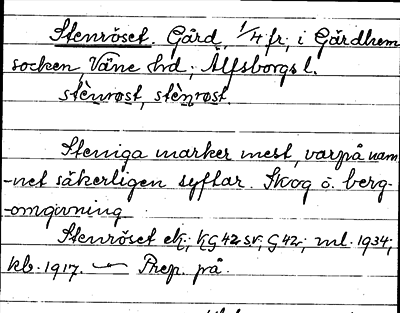 Stenröset. Gård, 1/4 fr, i Gärdhem
socken, Väne hd; Älfsborgs l.
stènrøst, stènrøst.
Steniga marker mest, varpå nam-
-net säkerligen syftar. Skog o. berg-
-omgivning
Stenröset ek; KG 42 sv; G 42; ml. 1934;
kb. 1917. — Prep. på.